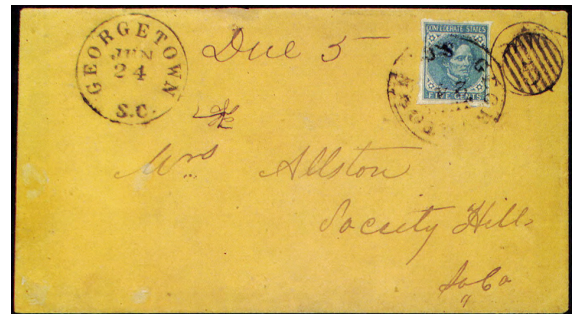 GEORGETOWN
JUN
24
S.C.
Due 5
CONFEDERATE STATES
FIVE CENTS
Mrs Allston
Society Hill
So Ca